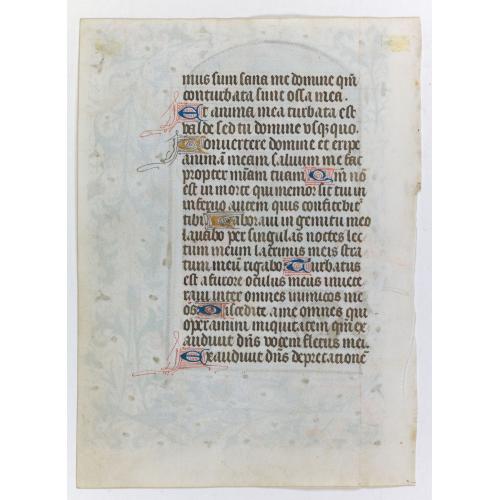 mus sum sana me domine qm̄
conturbata sunt ossa mea.
Et anima mea turbata est
valde sed tu domine usq; quo.
Convertere domine et eripe
animā meam salvum me fac
propter miām tuam Qm̄ nō
est in morte qui memor sit tui in
inferno autem quis confitebit̄
tibi Laboravi in gemitu meo
lavabo per singulas noctes lec
tum meum lacrimis meis stra
tum meū rigabo Turbatus
est a furore oculus meus invete
ravi inter omnes inimicos me
os Discedite a me omnes qui
operamini iniquitatem qm̄ ex
audivit dn̄s vocem fletus mei.
Exaudivit dn̄s deprecationē